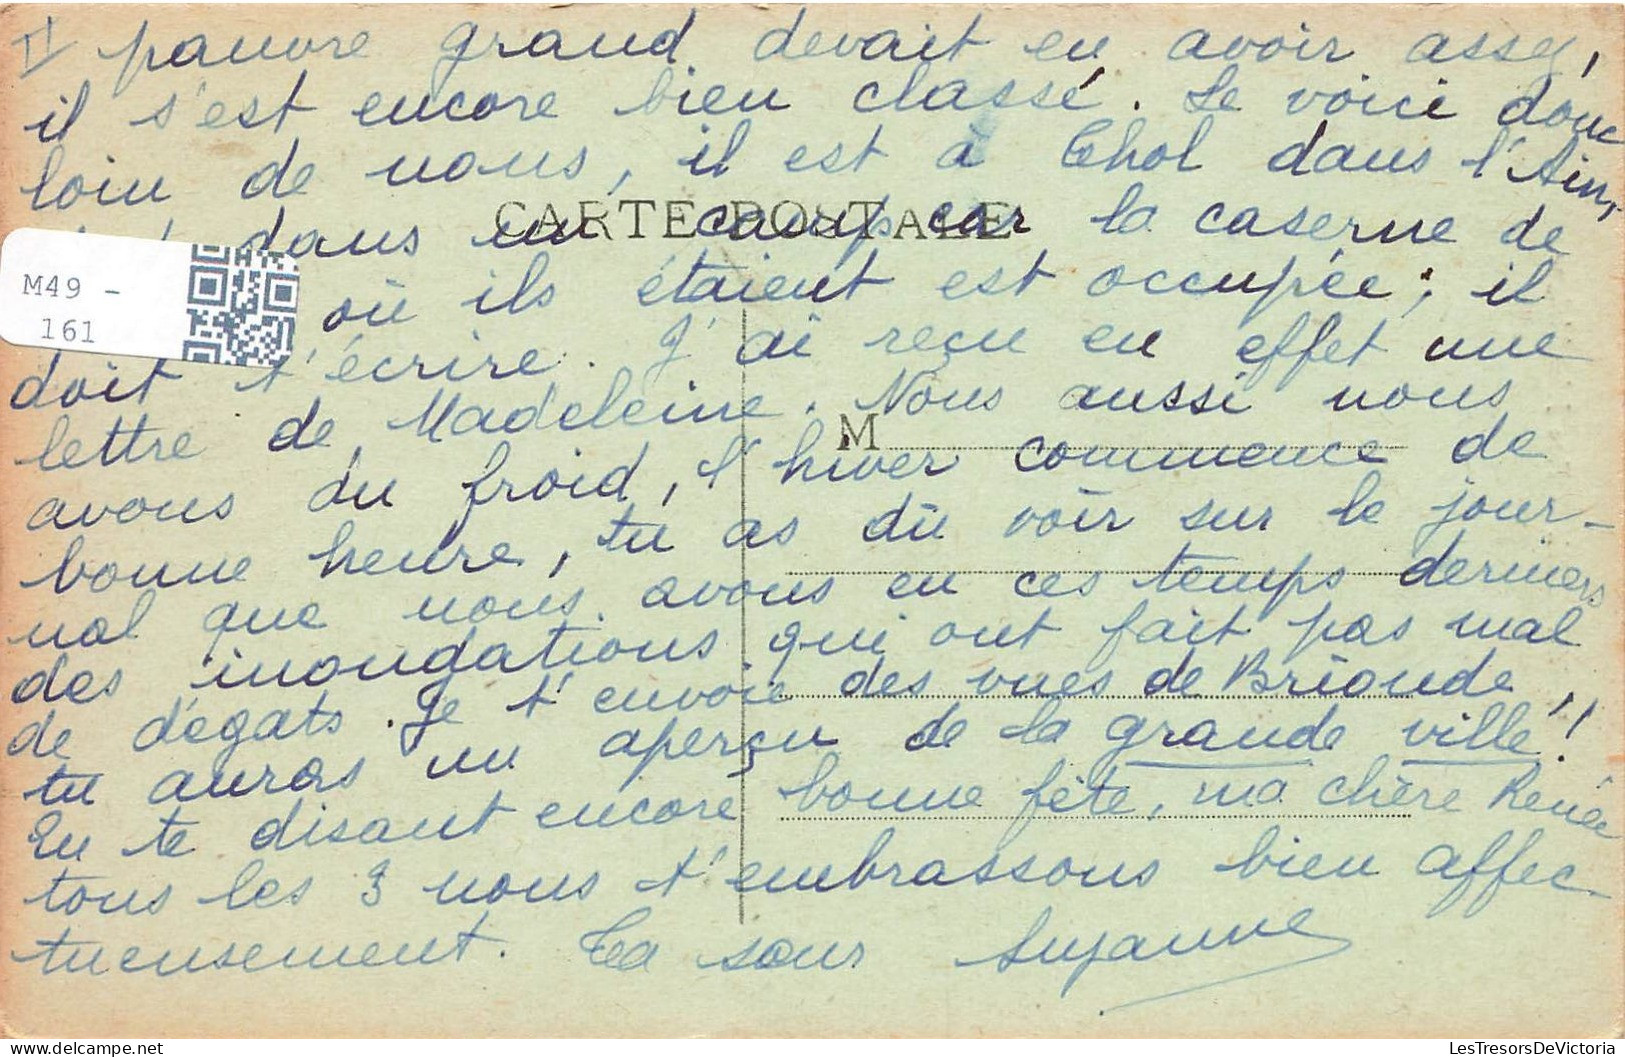 II pauvre grand devait en avoir assez,
il s'est encore bien classé. Le voici donc
loin de nous, il est à Thol dans l'Ain,
dans un camp car la caserne de
CARTE POSTALE
où ils étaient est occupée; il
M49 -
161
doit t'écrire. J'ai reçu en effet une
lettre de Madeleine. Nous aussi nous
M
avons du froid, l'hiver commence de
bonne heure, tu as dû voir sur le jour-
nal que nous avons eu ces temps derniers
des inondations qui ont fait pas mal
de dégats. Je t'envoie des vues de Brioude,
tu auras un aperçu de la grande ville!!
En te disant encore bonne fête, ma chère Renée
tous les 3 nous t'embrassons bien affec-
tueusement. Ta sœur Suzanne
LesTresorsDeVictoria
lestresorsdevictoria.com